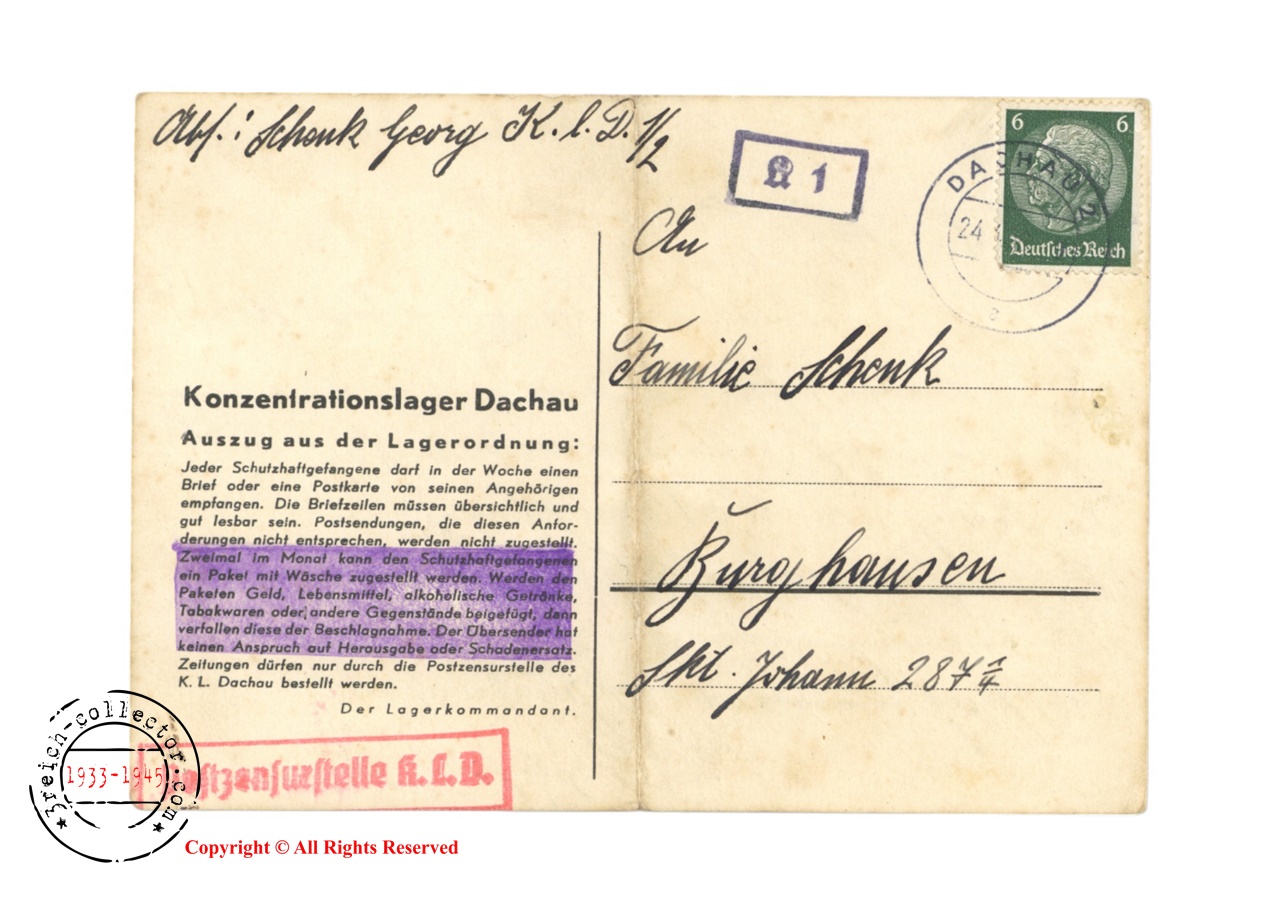 Abs.: Schenk Georg K. l. D. 1/2
K 1
6 6
Deutsches Reich
DACHAU 2
24
e
An
Familie Schenk
Burghausen
Skt. Johann 287 1/4
Konzentrationslager Dachau
Auszug aus der Lagerordnung:
Jeder Schutzhaftgefangene darf in der Woche einen
Brief oder eine Postkarte von seinen Angehörigen
empfangen. Die Briefzeilen müssen übersichtlich und
gut lesbar sein. Postsendungen, die diesen Anfor-
derungen nicht entsprechen, werden nicht zugestellt.
Zweimal im Monat kann den Schutzhaftgefangenen
ein Paket mit Wäsche zugestellt werden. Werden den
Paketen Geld, Lebensmittel, alkoholische Getränke,
Tabakwaren oder andere Gegenstände beigefügt, dann
verfallen diese der Beschlagnahme. Der Übersender hat
keinen Anspruch auf Herausgabe oder Schadenersatz.
Zeitungen dürfen nur durch die Postzensurstelle des
K. L. Dachau bestellt werden.
Der Lagerkommandant.
Postzensurstelle K.L.D.
3reich-collector.com
1933-1945
Copyright © All Rights Reserved